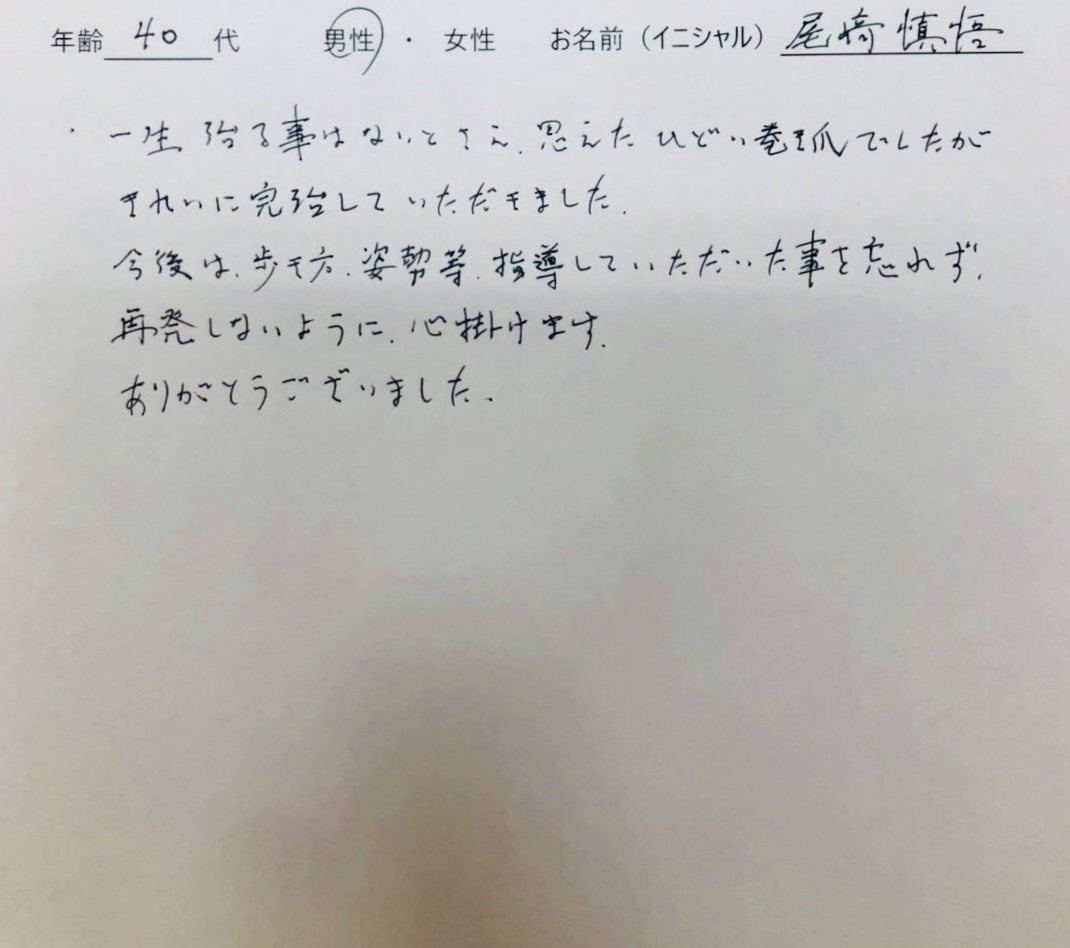 年齢 40 代 男性 ・ 女性 お名前（イニシャル） 尾崎 慎悟
・一生 治る事はないとさえ、思えた ひどい巻き爪でしたが
きれいに完治して いただきました。
今後は、歩き方、姿勢等、指導していただいた事を忘れず、
再発しないように、心掛けます。
ありがとうございました。